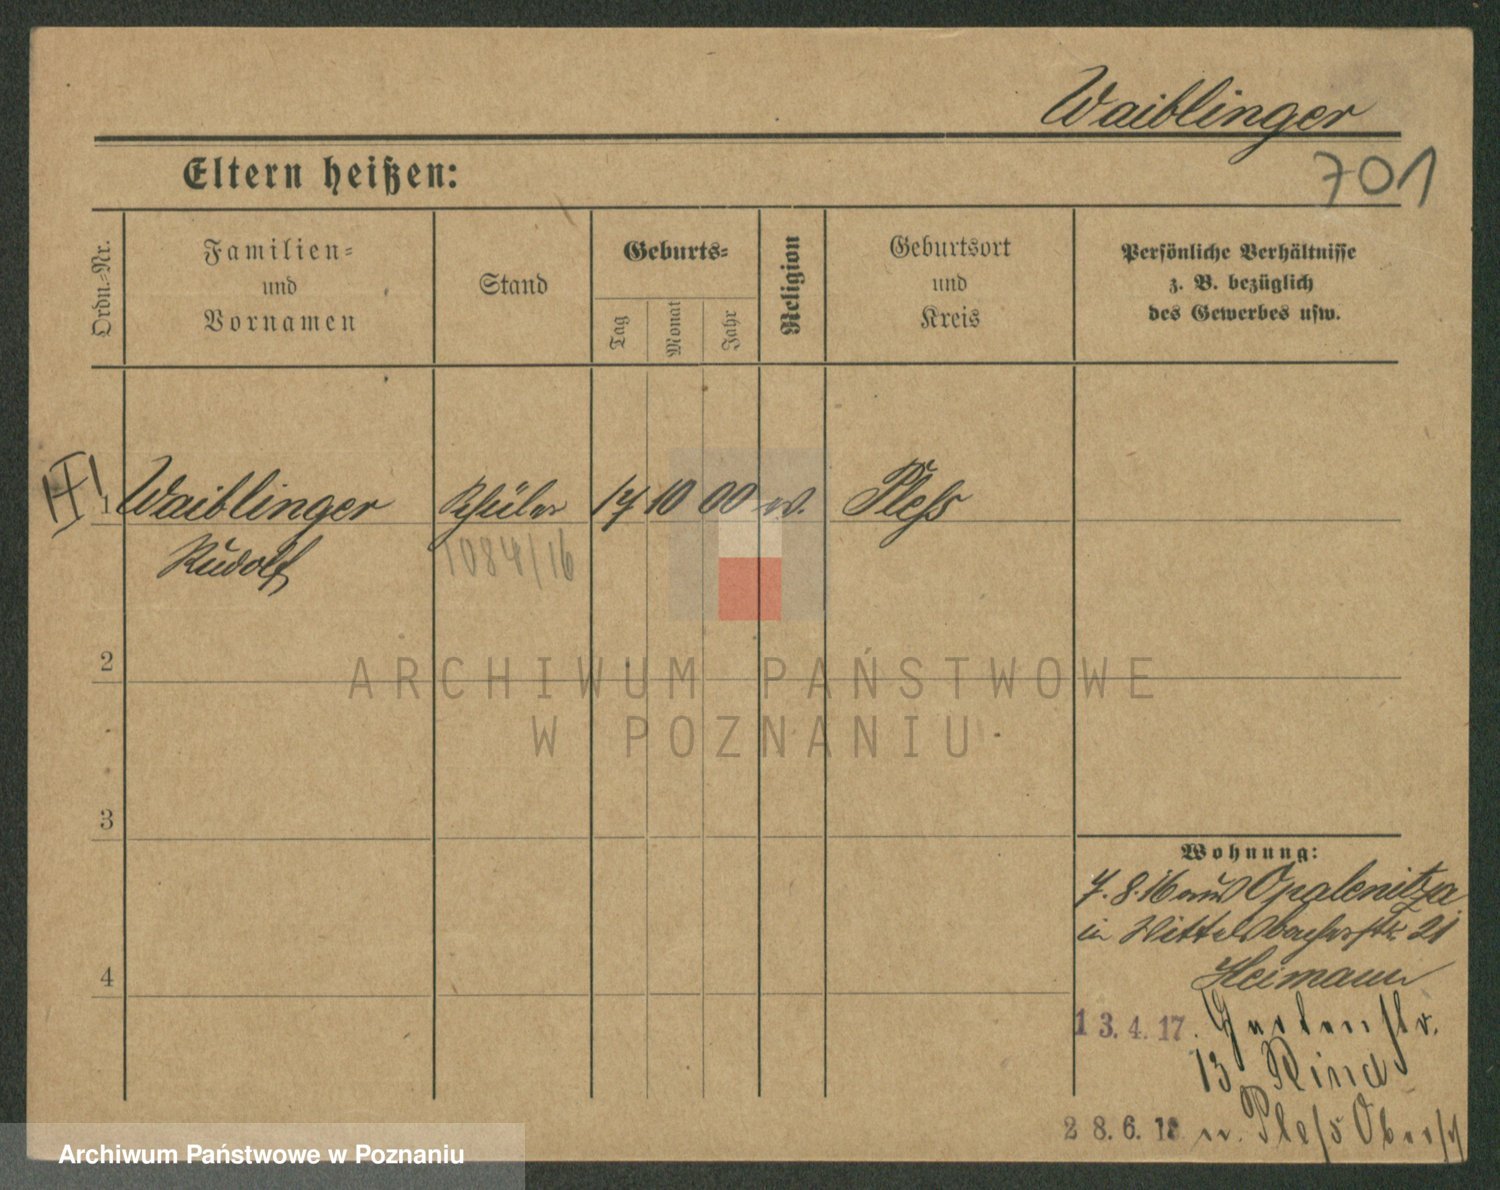 Waiblinger
701
Eltern heißen:
Ordn.-Nr.
Familien-
und
Vornamen
Stand
Geburts-
Tag
Monat
Jahr
Religion
Geburtsort
und
Kreis
Persönliche Verhältnisse
z. B. bezüglich
des Gewerbes usw.
1 Waiblinger Schüler 17 10 00 Pleß
Rudolf 1084/16
2
ARCHIWUM PAŃSTWOWE
W POZNANIU
3
Wohnung:
7.8.16 aus Opalenitza
in Wittelsbacherstr. 21
Heimann
4
13.4.17. Gartenstr.
13 Rind
28.6.18 n. Pleß Obersch
Archiwum Państwowe w Poznaniu